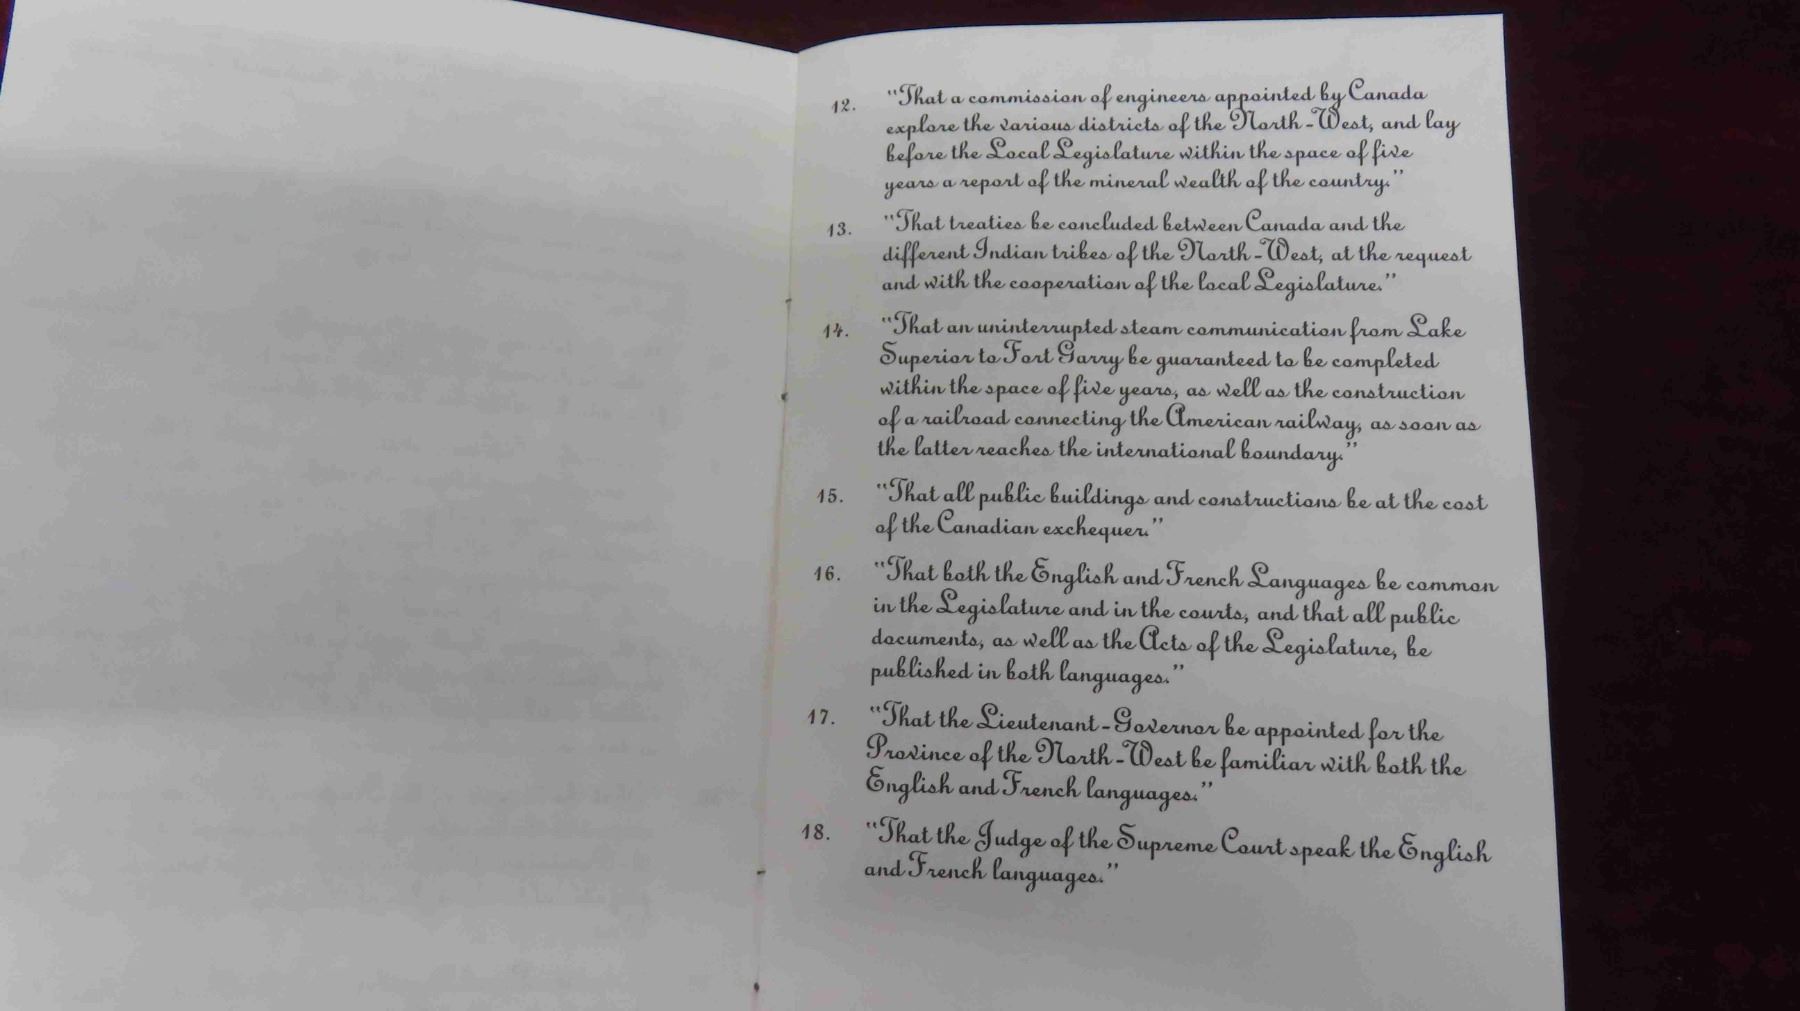 12. "That a commission of engineers appointed by Canada
explore the various districts of the North-West, and lay
before the Local Legislature within the space of five
years a report of the mineral wealth of the country."
13. "That treaties be concluded between Canada and the
different Indian tribes of the North-West, at the request
and with the cooperation of the local Legislature."
14. "That an uninterrupted steam communication from Lake
Superior to Fort Garry be guaranteed to be completed
within the space of five years, as well as the construction
of a railroad connecting the American railway, as soon as
the latter reaches the international boundary."
15. "That all public buildings and constructions be at the cost
of the Canadian exchequer."
16. "That both the English and French Languages be common
in the Legislature and in the courts, and that all public
documents, as well as the Acts of the Legislature, be
published in both languages."
17. "That the Lieutenant-Governor be appointed for the
Province of the North-West be familiar with both the
English and French languages."
18. "That the Judge of the Supreme Court speak the English
and French languages."